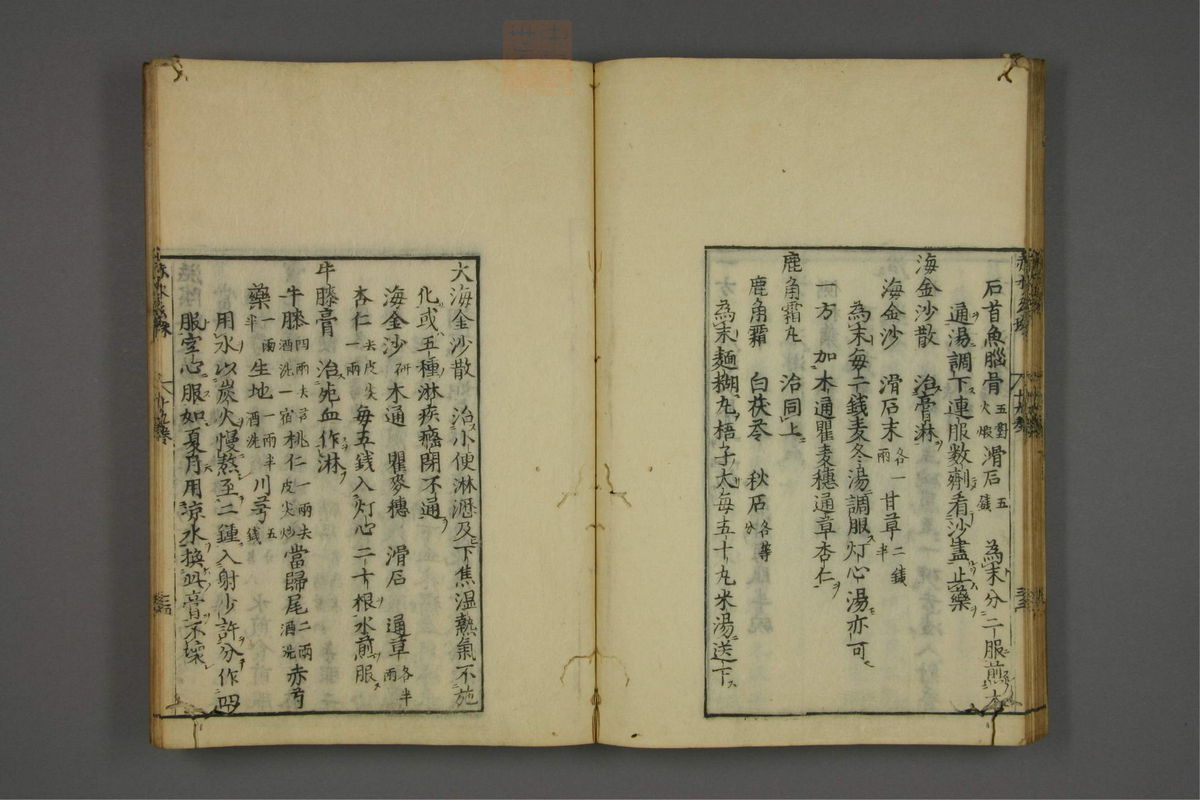 石首魚腦骨 五對火煆 滑石 五錢 為末分二服煎木
通湯調下連服数劑看沙盡止藥
海金沙散 治膏淋
海金沙 滑石末 各一兩 甘草 二錢半
為末每二錢麦冬湯調服灯心湯亦可
一方 加木通瞿麦穗通草杏仁
鹿角霜丸 治同上
鹿角霜 白茯苓 秋石 各等分
為末麵糊丸梧子大每五十丸米湯送下
大海金沙散 治小便淋瀝及下焦温熱氣不施
化或五種淋疾癃閉不通
海金沙 研 木通 瞿麥穗 滑石 通草 各半兩
杏仁 去皮尖一兩 每五錢入灯心二十根水煎服
牛膝膏 治死血作淋
牛膝 四兩去芦酒洗一宿 桃仁 一兩去皮尖炒 當歸尾 二兩酒洗 赤芍
藥 一兩半 生地 一兩半酒洗 川芎 五錢
用水以炭火慢熬至二鍾入射少許分作四
服空心服如夏月用涼水換此膏不壞